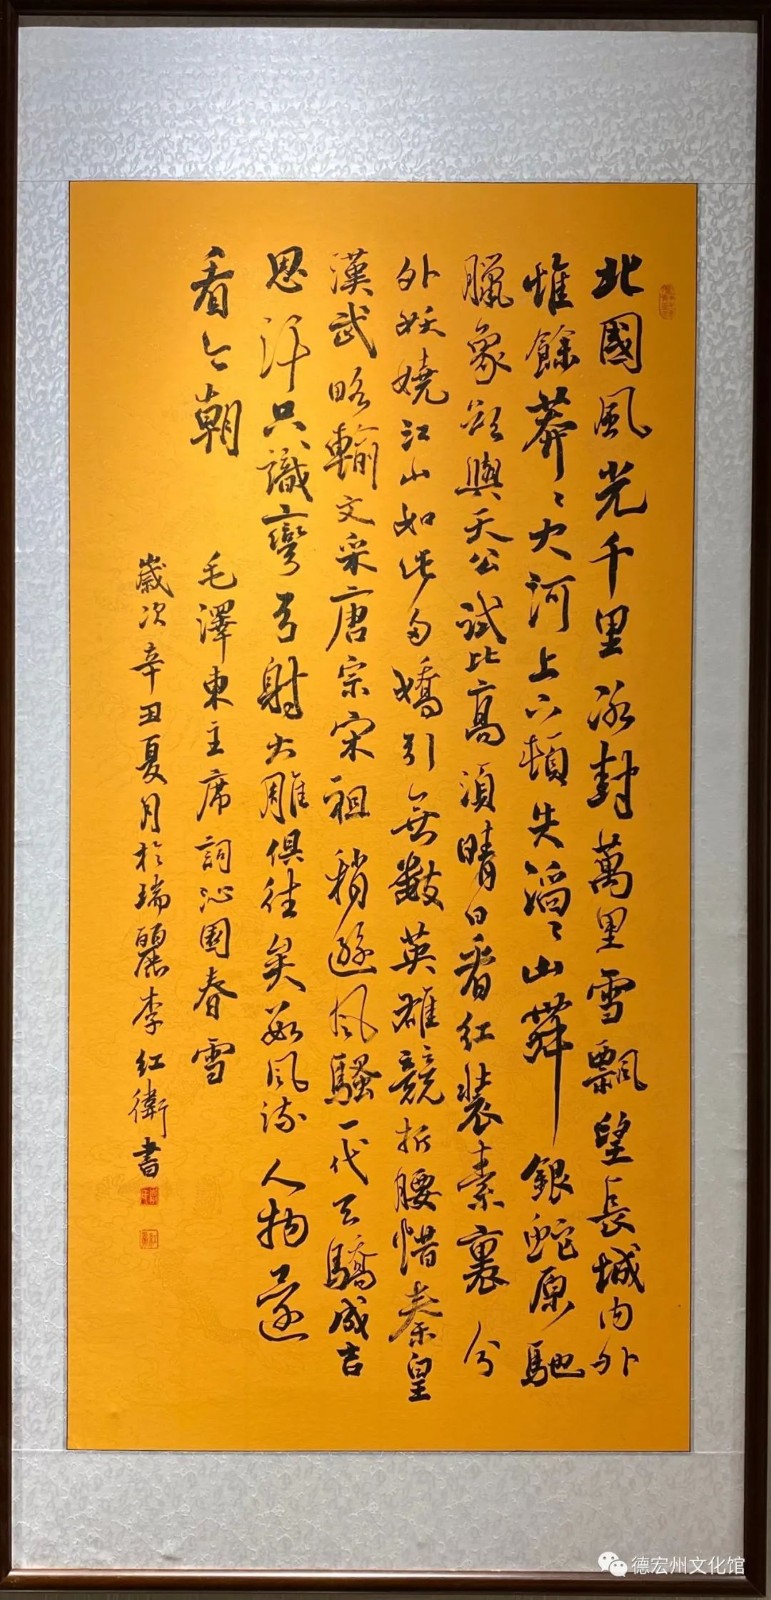 北國風光千里冰封萬里雪飄望長城内外
惟餘莽〻大河上下頓失滔〻山舞銀蛇原馳
臘象欲與天公試比高須晴日看红装素裹分
外妖嬈江山如此多嬌引無數英雄競折腰惜秦皇
漢武略輸文采唐宗宋祖稍遜风騷一代天驕成吉
思汗只識彎弓射大雕俱往矣數风流人物還
看今朝
毛澤東主席詞沁園春雪
歲次辛丑夏月於瑞麗李红衛書
德宏州文化馆